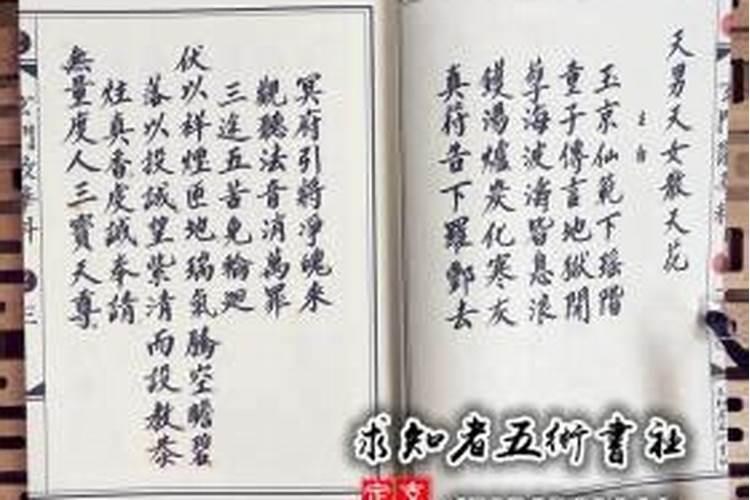 天男天女散天花
玉京仙範下瑶階
童子傳言地獄開
孽海波濤皆息浪
鑊湯爐炭化寒灰
真符告下羅酆去
冥府引將凈魄来
觀聽法音消萬罪
三途五苦免輪迴
伏以祥煙匝地瑞氣騰空瞻碧
落以投誠望紫清而設教恭
炷真香虔誠奉請
無量度人三寶天尊
求知者五術書社